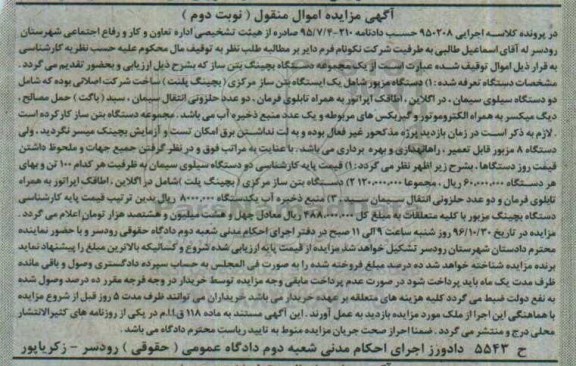 آگهی مزایده اموال منقول ( نوبت دوم )
در پرونده کلاسه اجرایی ۹۵۰۲۰۸ حسب دادنامه ۲۱۰-۹۵/۷/۴ صادره از هیئت تشخیص اداره تعاون و کار و رفاع اجتماعی شهرستان
رودسر له آقای اسماعیل طالبی به طرفیت شرکت نکونام فرم دایر بر مطالبه طلب نظر به توقیف مال محکوم علیه حسب نظریه کارشناسی
به قرار ذیل اموال توقیف شده عبارت است از یک مجموعه دستگاه بچینگ بتن ساز که بشرح ذیل ارزیابی و بحضور تقدیم می گردد .
مشخصات دستگاه تعرفه شده : ۱) دستگاه مزبور شامل یک ایستگاه بتن ساز مرکزی ( بچینگ پلنت ) ساخت شرکت اصلانی بوده که شامل
دو دستگاه سیلوی سیمان ، دراگلاین ، اطاقک اپراتور به همراه تابلوی فرمان ، دو عدد حلزونی انتقال سیمان ، سبد ( باکت ) حمل مصالح ،
دیگ میکسر به همراه الکتروموتور و گیربکس های مربوطه و یک عدد منبع ذخیره آب می باشد . مجموعه دستگاه بتن ساز کارکرده است
. لازم به ذکر است در زمان بازدید پروژه مذکور غیر فعال بوده و به لت نداشتن برق امکان تست و آزمایش بچینک میسر نگردید ، ولی
دستگاه ۸ مزبور قابل تعمیر ، راهاندازی و بهره برداری می باشد . با عنایت به مراتب فوق و در نظر گرفتن جمیع جهات و ملحوظ داشتن
قیمت روز دستگاها ، بشرح زیر اظهر نظر می گردد : ۱) قیمة پایه کارشناسی دو دستگاه سیلوی سیمان به ظرفیت هر کدام ۱۰۰ تن و بهای
هر دستگاه ۶۰.۰۰۰.۰۰۰ ریال ، مجموعا ۱۲۰.۰۰۰.۰۰۰ ۲) دستگاه بتن ساز مرکزی ( بچینگ پلت ) شامل دراگلاین ، اطاقک اپراتور به همراه
تابلوی فرمان و دو عدد حلزونی انتقال سیمان سبد ، ۳) منبع ذخیره آب یکدستگاه ۸.۰۰۰.۰۰۰ ریال بدین ترتیب قیمت پایه کارشناسی
دستگاه بچینگ مزبور با کلیه متعلقات به مبلغ کل ۴۸۸.۰۰۰.۰۰۰ ریال معادل چهل و هشت میلیون و هشتصد هزار تومان اعلام می گردد .
مزایده در تاریخ ۹۶/۱۰/۳۰ روز شنبه ساعت ۹ الی ۱۱ صبح در دفتر اجرای احکام مدنی شعبه دوم دادگاه حقوقی رودسر و با حضور نماینده
محترم دادستان شهرستان رودسر تشکیل خواهد شد مزایده از قیمت پایه ارزیابی شده شروع و کسانیکه بالاترین مبلغ را پیشنهاد نماید
برنده مزایده شناخته خواهد شد ده درصد مبلغ فروخته شده را به صورت فی المجلس به حساب سپرده دادگستری وصول و باقی مانده
ظرف مدت یک ماه باید پرداخت شود در صورت عدم پرداخت مابقی وجه مزایده توسط خریدار در وجه فرجه مقرر ده درصد وصول شده
به نفع دولت ضبط می گردد کلیه هزینه های متعلقه بر عهده خریدار می باشد خریداران می توانند ظرف مدت ۵ روز قبل از شروع مزایده
با هماهنگی این اجرا از ملک مورد مزایده بازدید به عمل آورند . این آگهی مستند به ماده ۱۱۸ ق.ا.ا.م در یکی از روزنامه های کثیرالانتشار
محلی درج و منتشر می گردد . ضمنا احراز صحت جریان مزایده منوط به تایید ریاست محترم دادگاه می باشد .
ح ۵۵۴۳ دادورز اجرای احکام مدنی شعبه دوم دادگاه عمومی ( حقوقی ) رودسر - زکریاپور